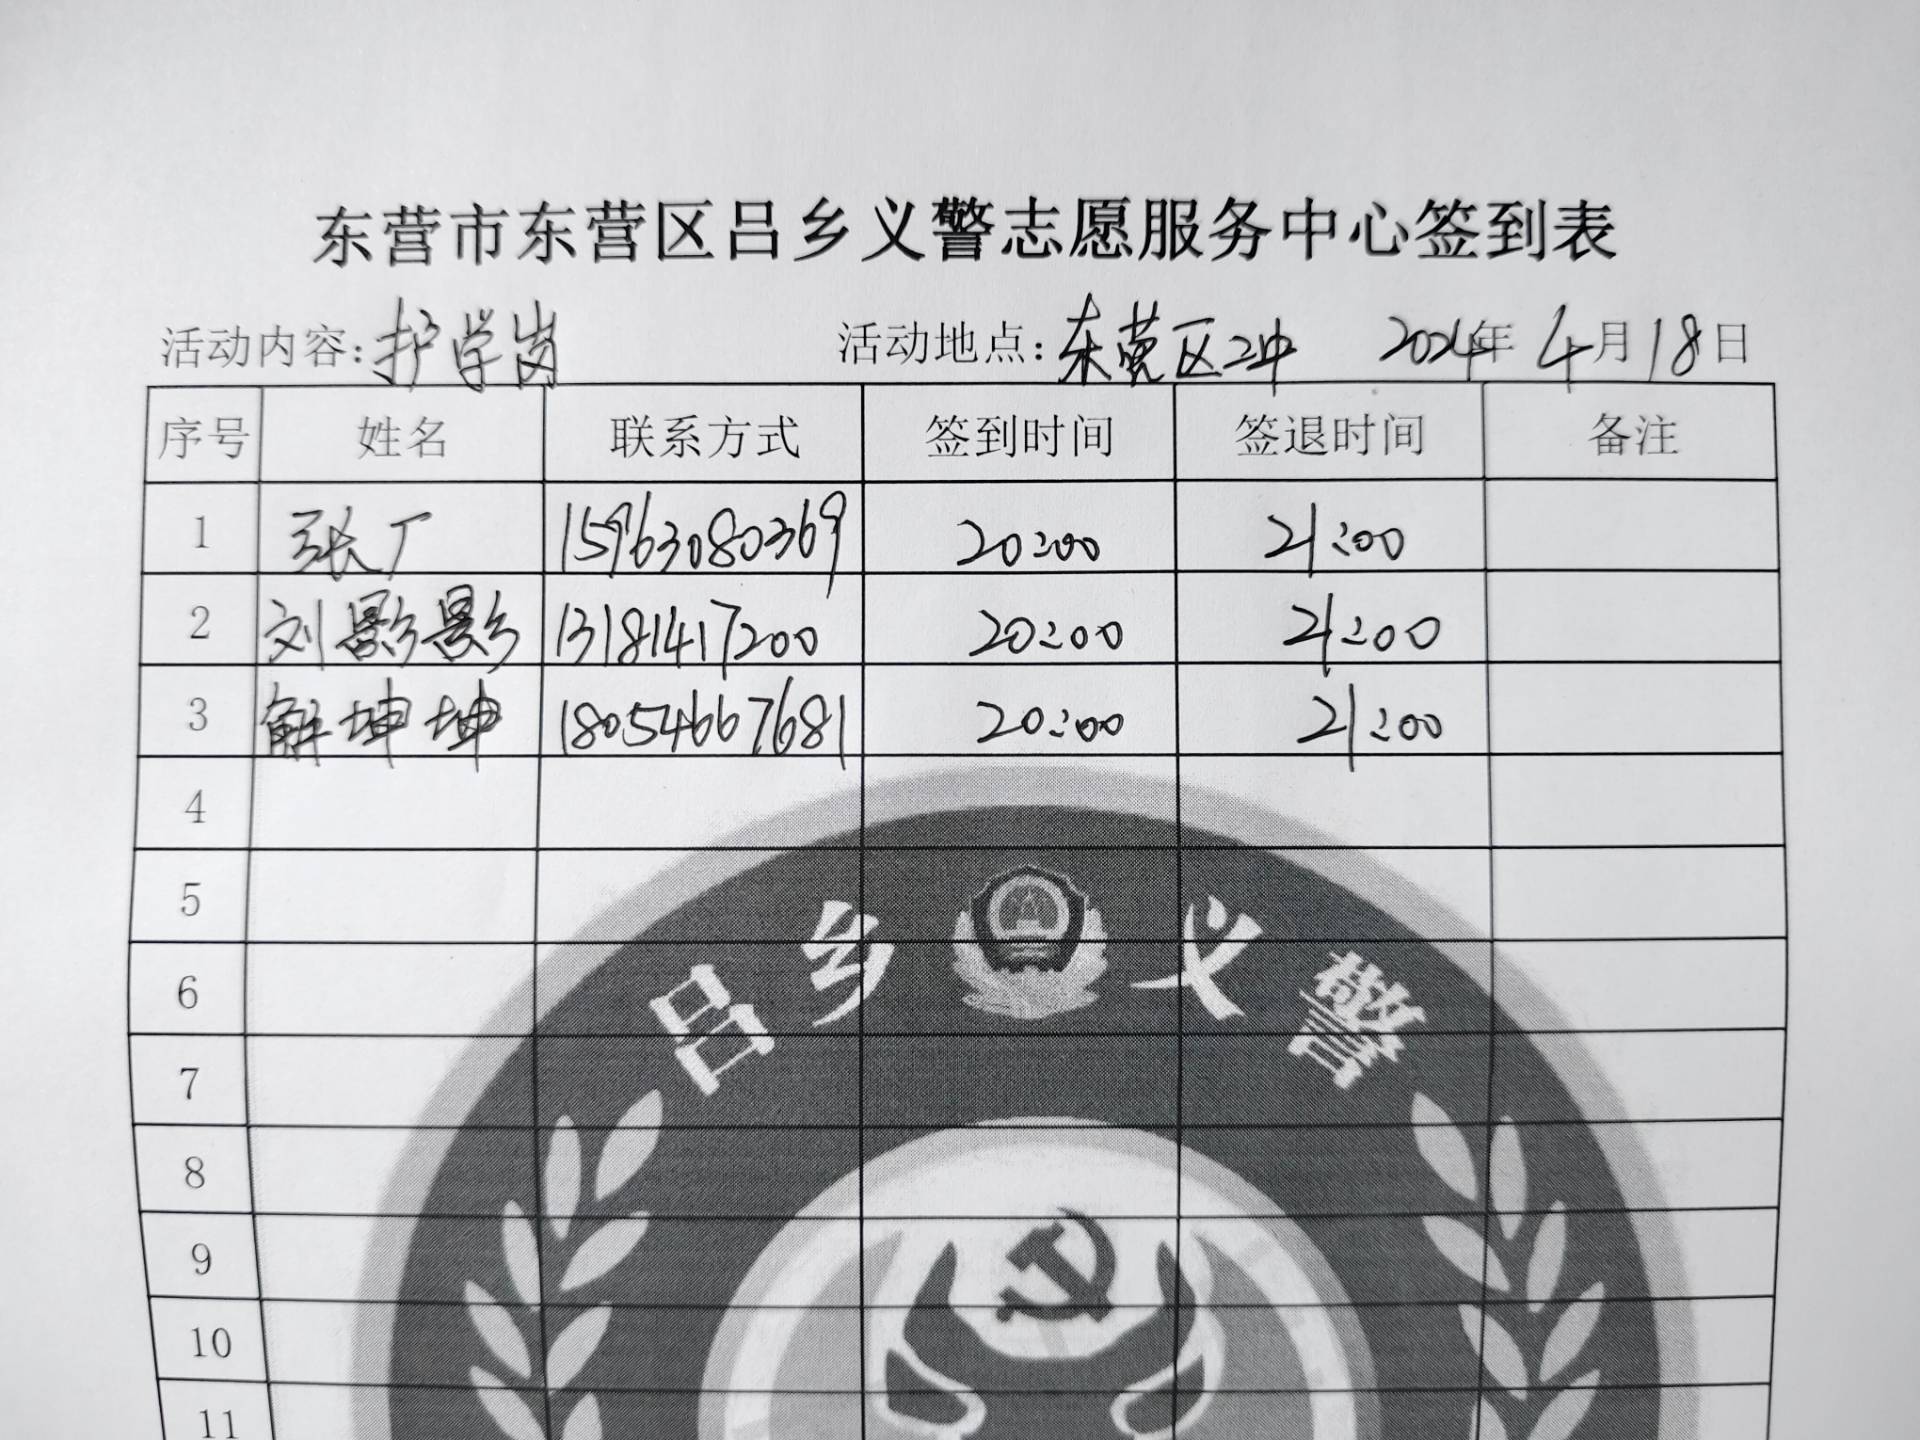 东营市东营区吕乡义警志愿服务中心签到表
活动内容:护学岗 活动地点:东营区二中 2024年 4月18日
序号 姓名 联系方式 签到时间 签退时间 备注
1 张广 15963080369 20:00 21:00
2 刘影影 13181417200 20:00 21:00
3 解坤坤 18054667681 20:00 21:00
4
5
6
7
8
9
10
11
吕乡义警